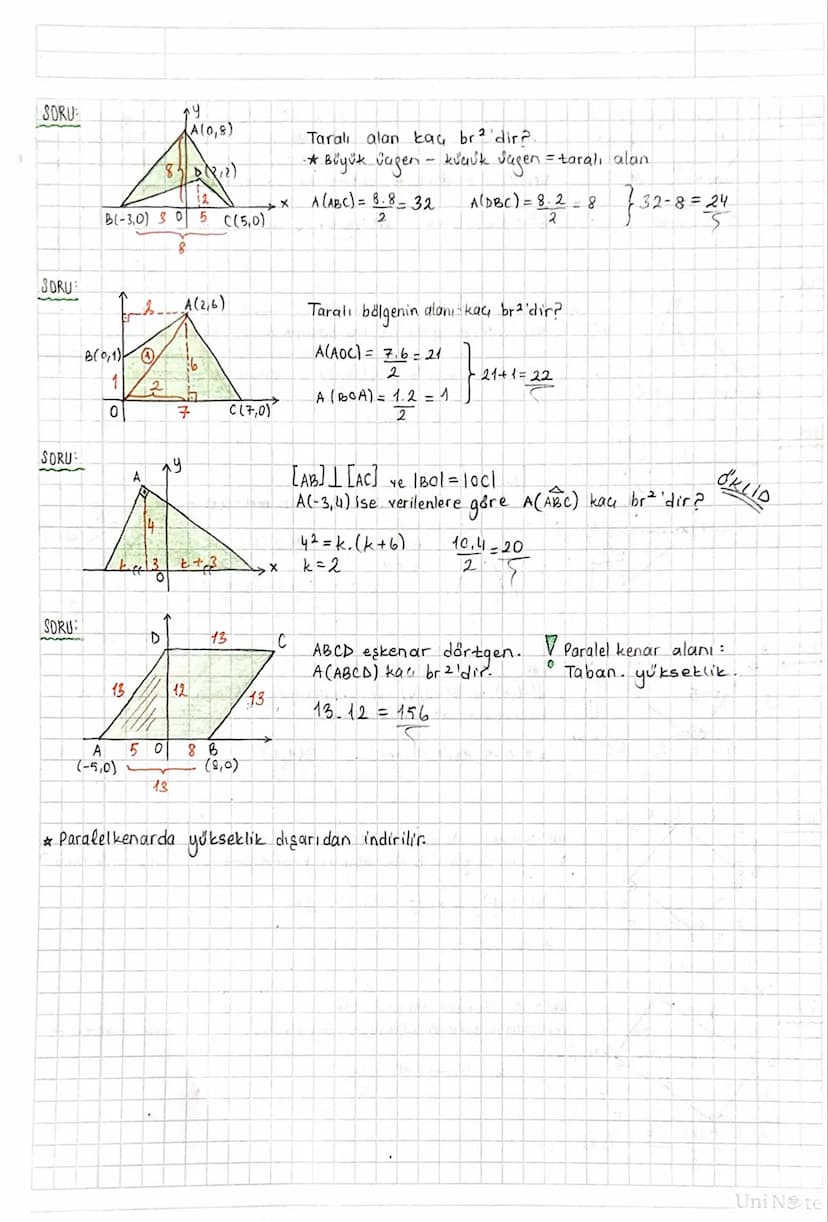 SORU:
y
A(0,8)
8
2
B(-3,0) 3 0 5 C(5,0)
x
8
Taralı alan kaç br²'dir?
* Büyük üçgen - küçük üçgen = taralı alan
A(ABC) = 8.8/2 = 32 A(DBC) = 8.2/2 = 8 } 32-8 = 24
SORU:
2 A(2,6)
B(0,1)
1 2 6
O 7 C(7,0)
Taralı bölgenin alanı kaç br²'dir?
A(AOC) = 7.6/2 = 21
A(BOA) = 1.2/2 = 1
} 21+1 = 22
SORU:
A y
4
k 3 k+3 x
O
[AB]⊥[AC] ve |BO| = |OC|
A(-3,4) ise verilenlere göre A(ABC) kaç br²'dir?
ÖKLİD
4² = k.(k+6) 10.4/2 = 20
k=2
SORU:
D 13 C
13 12 13
A 5 O 8 B
(-5,0) (8,0)
13
ABCD eşkenar dörtgen.
A(ABCD) kaç br²'dir.
13.12 = 156
! Paralel kenar alanı:
Taban. yükseklik.
* Paralelkenarda yükseklik dışarıdan indirilir.
UniNote